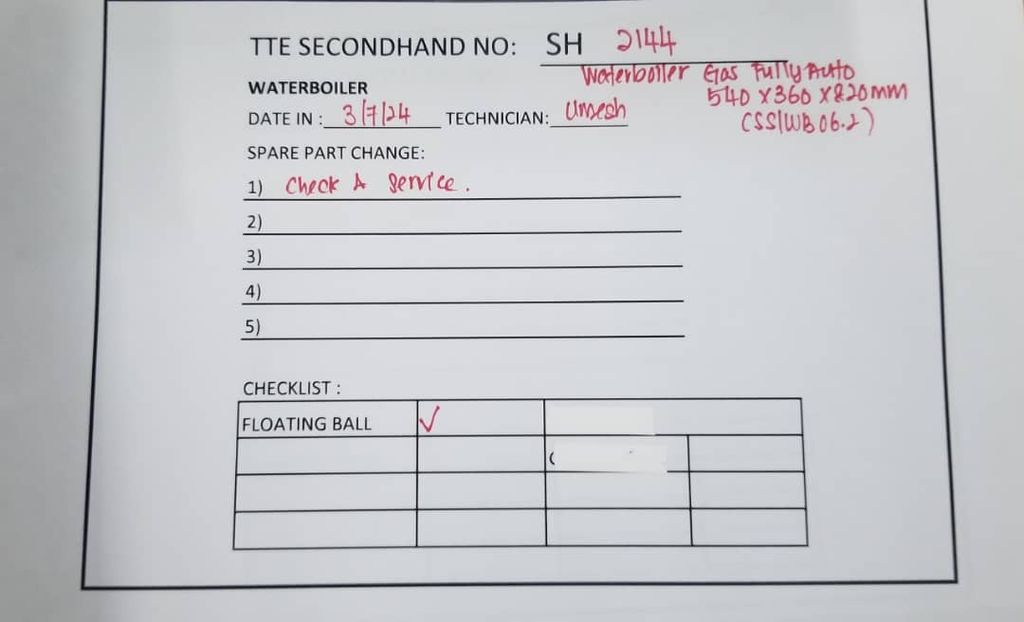 TTE SECONDHAND NO: SH 2144
Waterboiler Gas Fully Auto
WATERBOILER
540 x 360 x 820mm
DATE IN : 3/7/24 TECHNICIAN: Umesh
SPARE PART CHANGE:
1) Check & Service.
2)
3)
4)
5)
CHECKLIST :
FLOATING BALL ✓